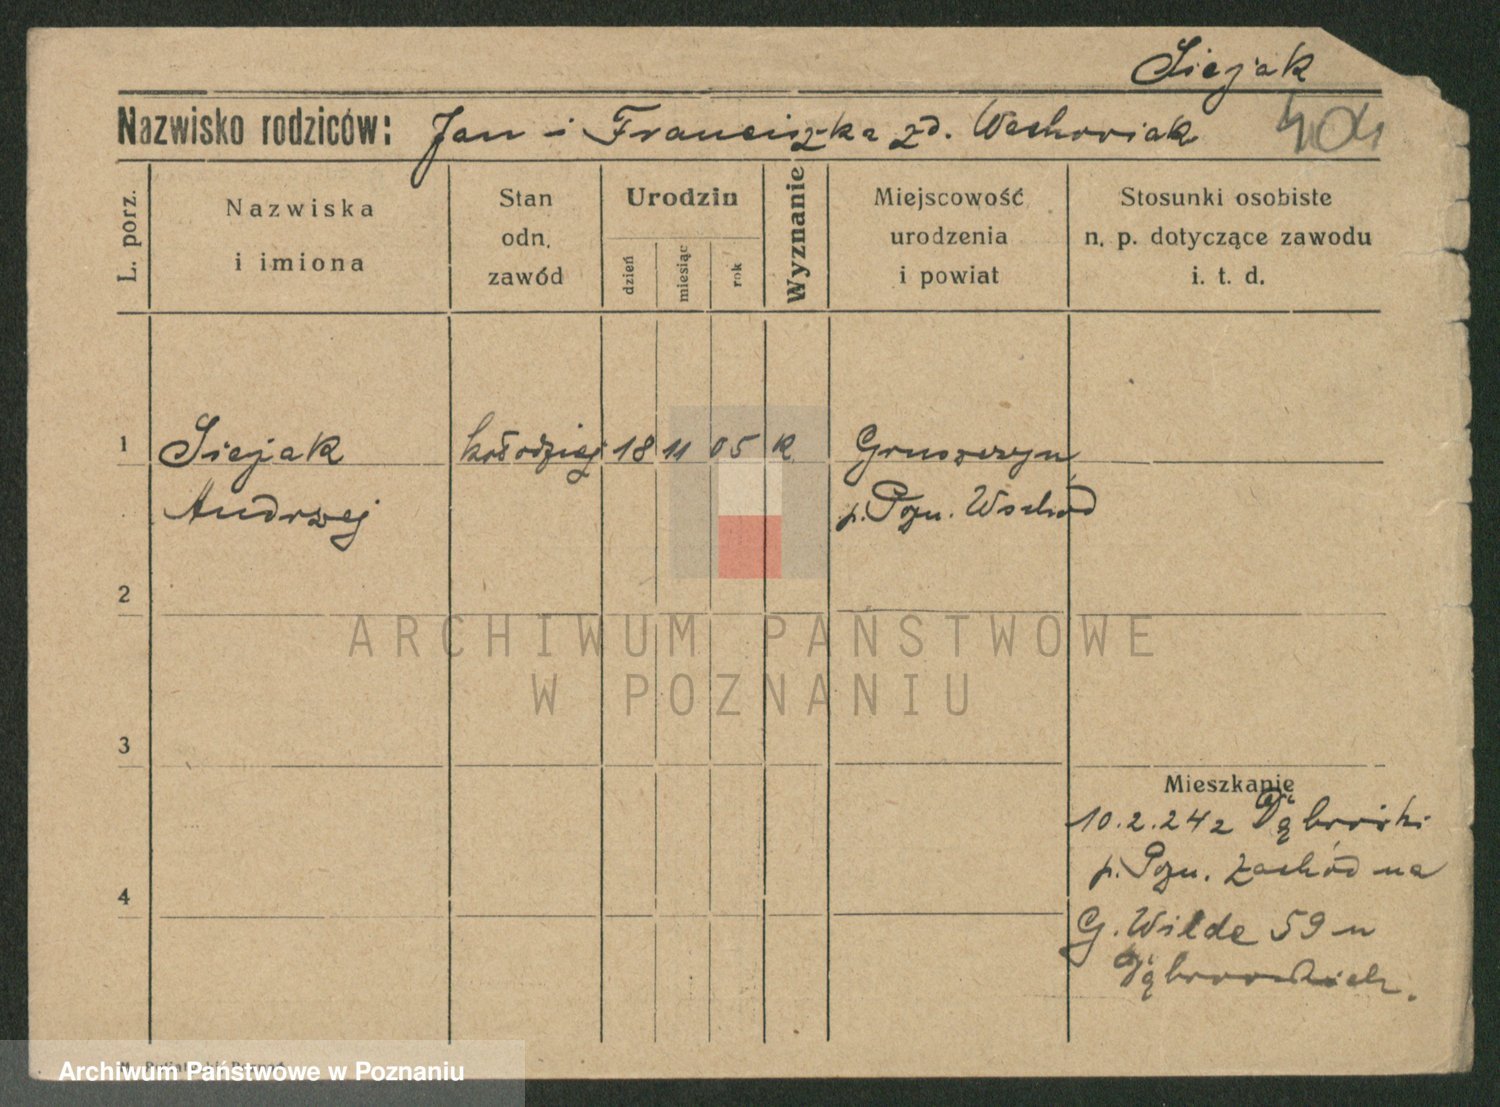 Siejak
Nazwisko rodziców: Jan i Franciszka zd. Wachowiak
L. porz.
Nazwiska
i imiona
Stan
odn.
zawód
Urodzin
dzień
miesiąc
rok
Wyznanie
Miejscowość
urodzenia
i powiat
Stosunki osobiste
n. p. dotyczące zawodu
i. t. d.
1 Siejak kołodziej 18 11 05 k Gruszczyn
Andrzej p. Pozn. Wschód
2
ARCHIWUM PAŃSTWOWE
W POZNANIU
3
Mieszkanie
10.2.24 z Dąbrówki
p. Pozn. Zachód na
4
G. Wilde 59 u
Archiwum Państwowe w Poznaniu